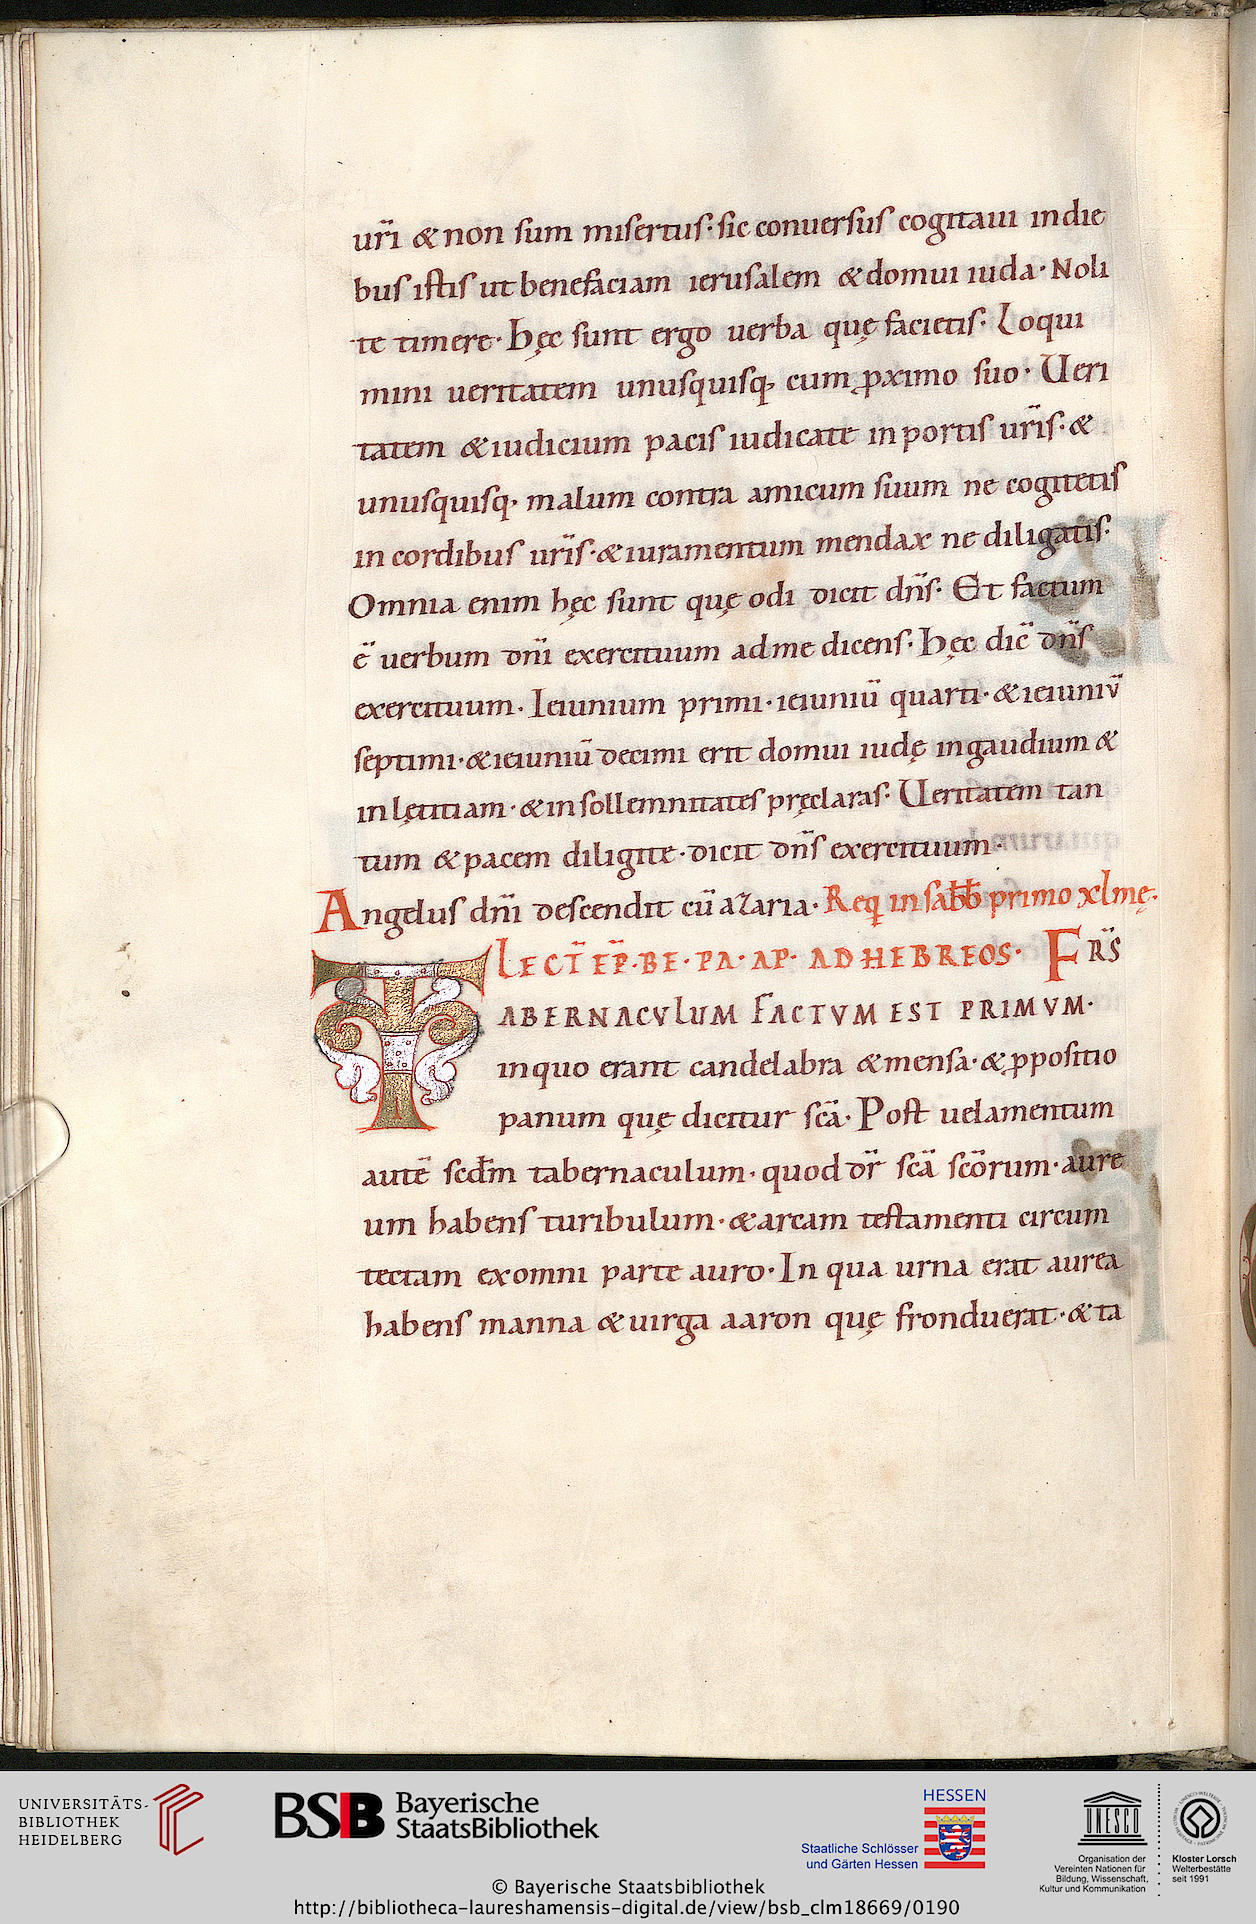 ur̄i & non sum misertus· sic conuersus cogitaui in die
bus istis ut benefaciam ierusalem & domui iuda· Noli
te timere· Hęc sunt ergo uerba quę facietis· Loqui
mini ueritatem unusquisq; cum ꝓximo suo· Ueri
tatem & iudicium pacis iudicate in portis ur̄is· &
unusquisq· malum contra amicum suum ne cogitetis
in cordibus ur̄is· & iuramentum mendax ne diligatis·
Omnia enim hęc sunt quę odi dicit dn̄s· Et factum
ē uerbum dn̄i exercituum ad me dicens· Hęc dic̄ dn̄s
exercituum· Ieiunium primi· ieiuniū quarti· & ieiuniū
septimi· & ieiuniū decimi erit domui iudę in gaudium &
in lętitiam· & in sollemnitates pręclaras· Ueritatem tan
tum & pacem diligite· dicit dn̄s exercituum·
Angelus dn̄i descendit cū azaria· Req̄ in sabb̄ primo xlmę·
LECT̄ EP̄· BE· PA· AP· AD HEBREOS· FRS̄
TABERNACULUM FACTVM EST PRIMVM·
in quo erant candelabra & mensa· & ꝓpositio
panum quę dicitur sc̄a· Post uelamentum
autē scd̄m tabernaculum· quod dr̄ sc̄a sc̄orum· aure
um habens turibulum· & arcam testamenti circum
tectam ex omni parte auro· In qua urna erat aurea
habens manna & uirga aaron quę fronduerat· & ta
UNIVERSITÄTS-
BIBLIOTHEK
HEIDELBERG
BSB Bayerische
StaatsBibliothek
HESSEN
Staatliche Schlösser
und Gärten Hessen
UNESCO
Organisation der
Vereinten Nationen für
Bildung, Wissenschaft,
Kultur und Kommunikation
Kloster Lorsch
Welterbestätte
seit 1991
© Bayerische Staatsbibliothek
http://bibliotheca-laureshamensis-digital.de/view/bsb_clm18669/0190